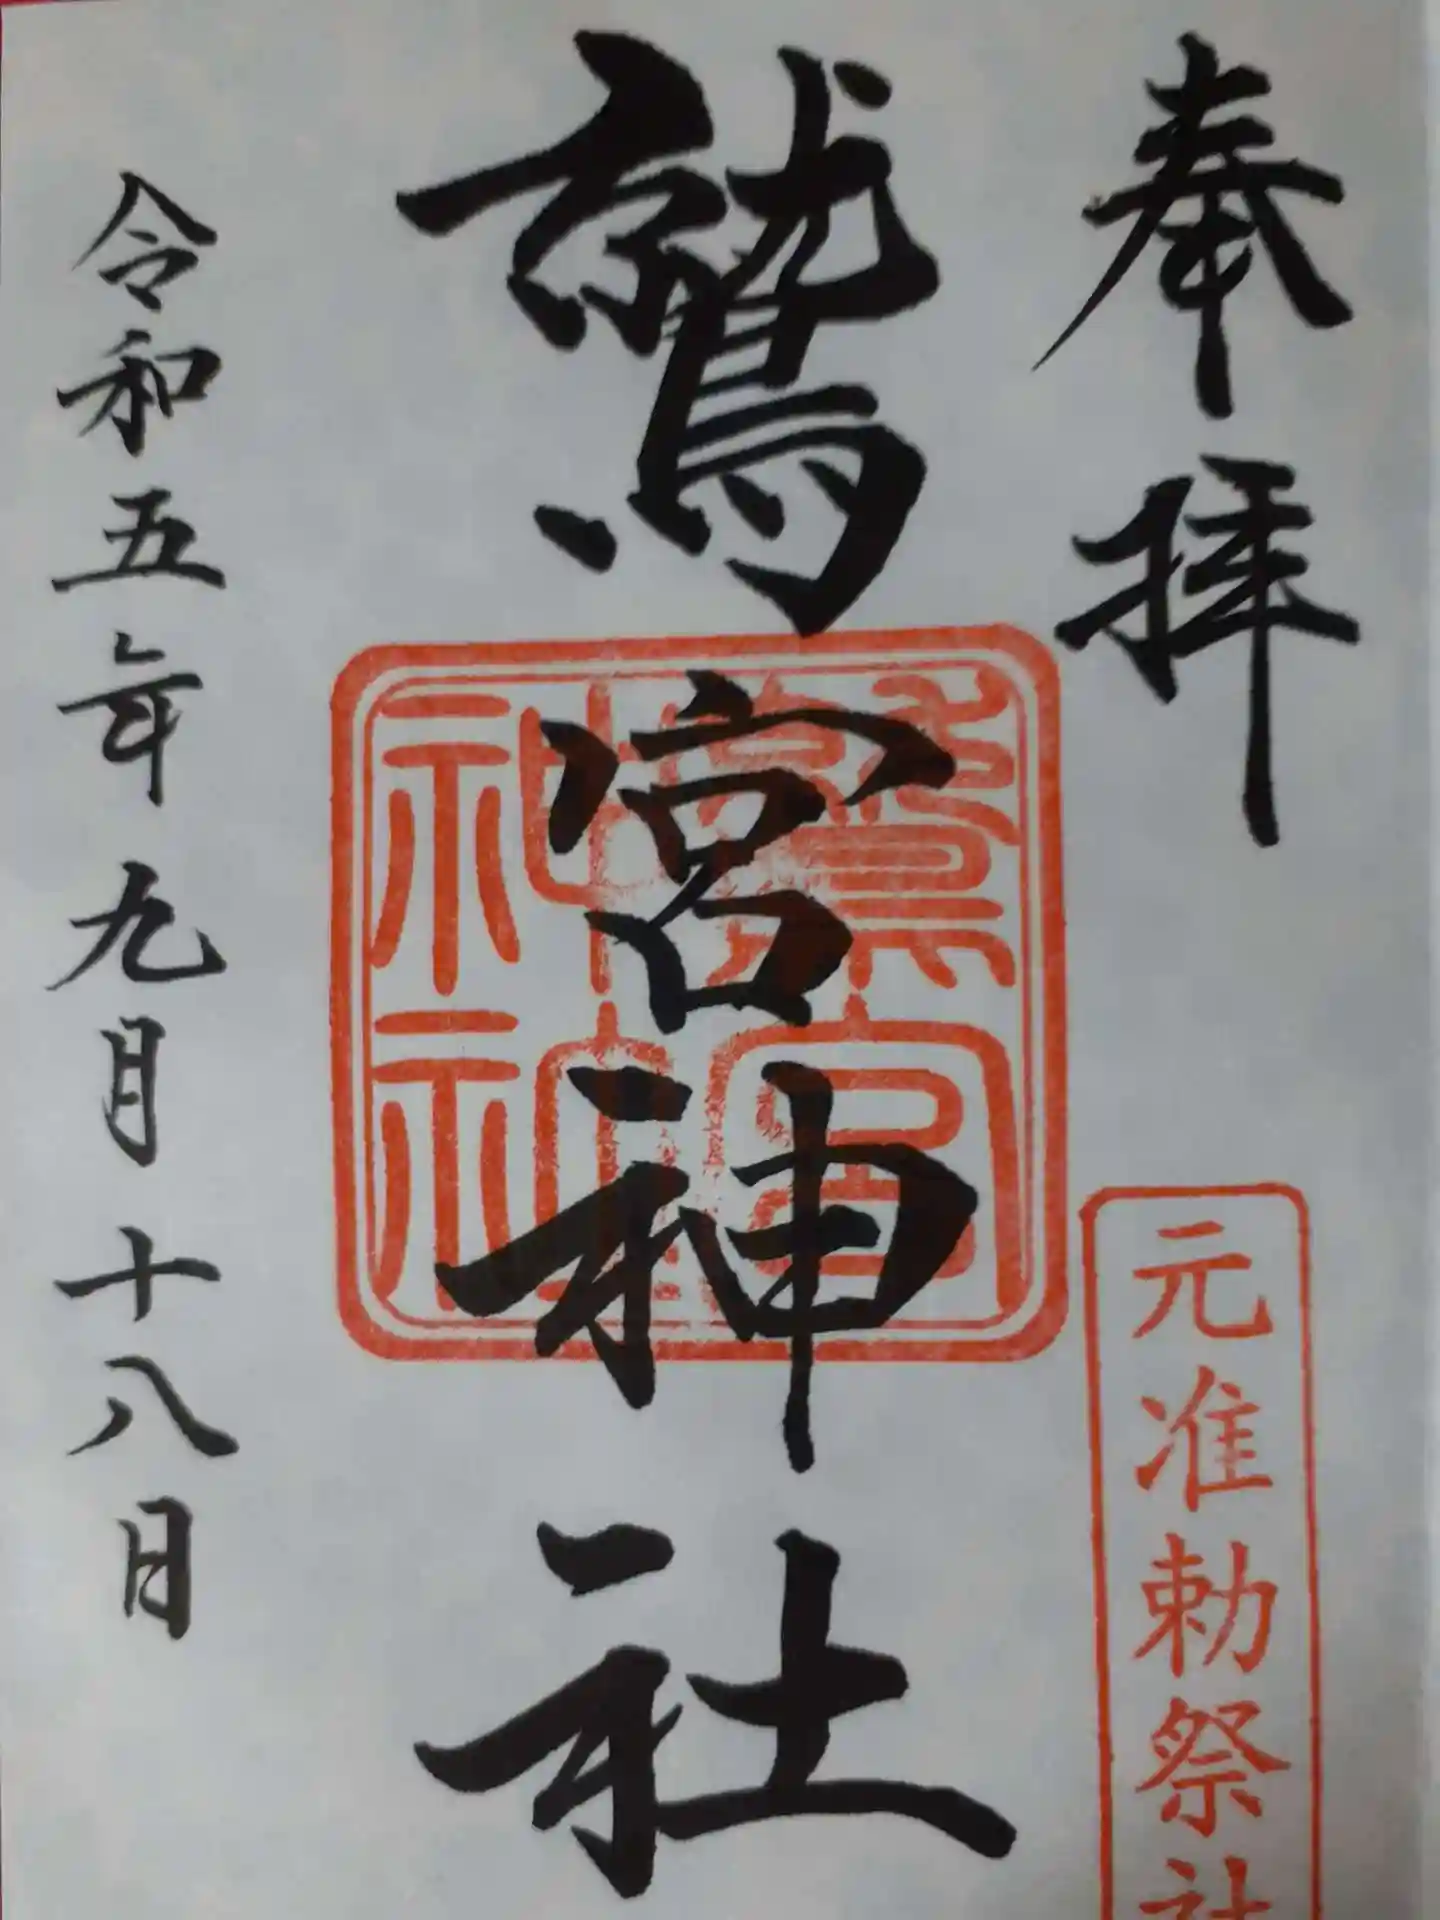 奉拝
元准勅祭社
鷲宮神社
鷲宮
神社
令和五年九月十八日